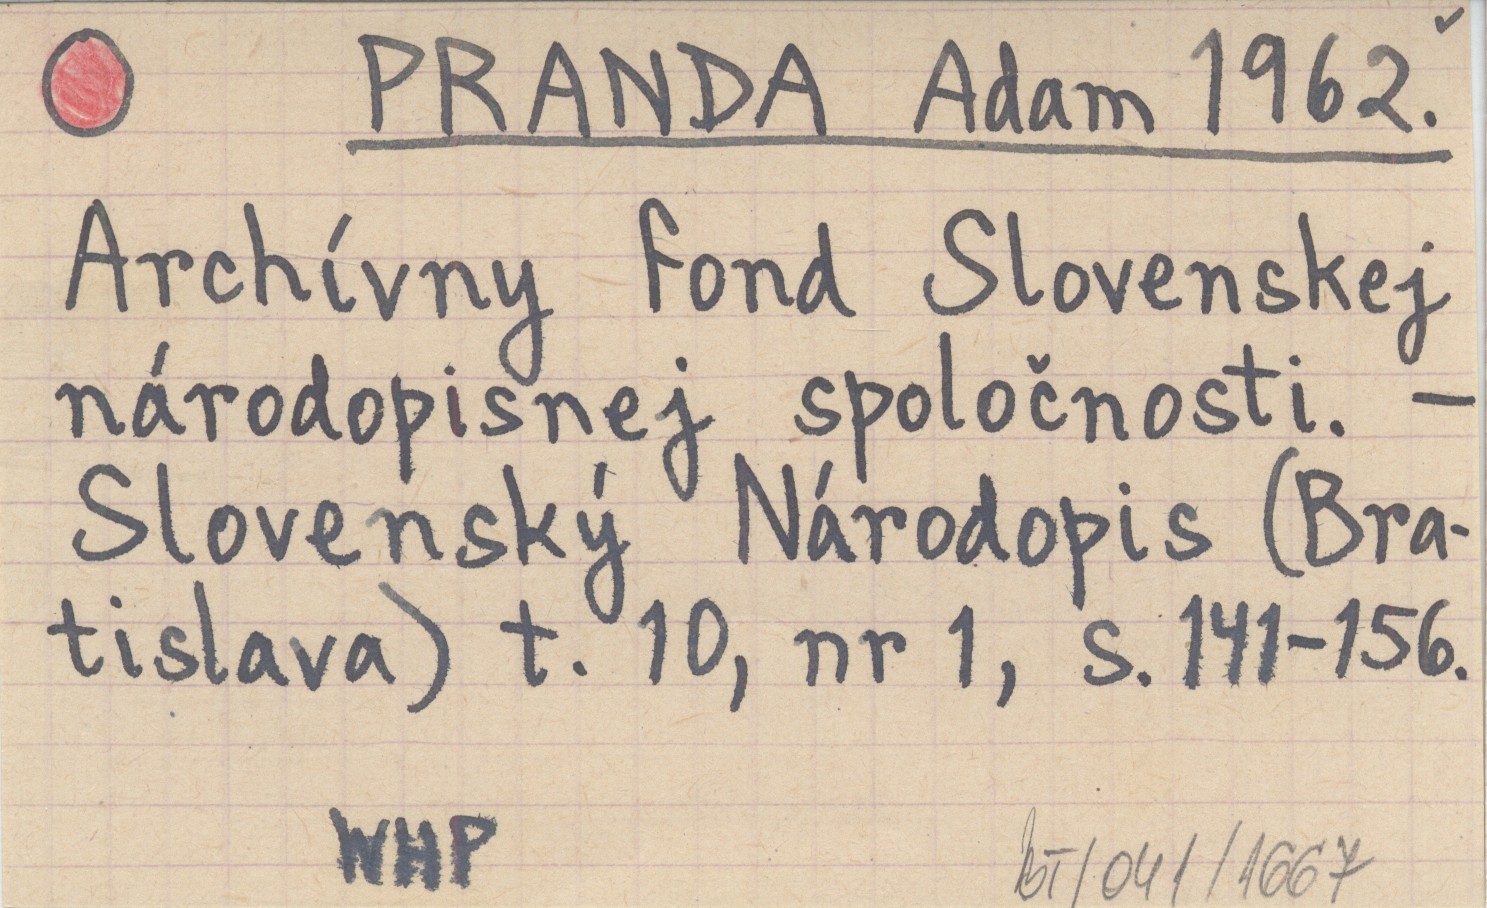 PRANDA Adam 1962.
Archívny fond Slovenskej
národopisnej spoločnosti. –
Slovenský Národopis (Bra-
tislava) t. 10, nr 1, s. 141-156.
WHP
/041/1667